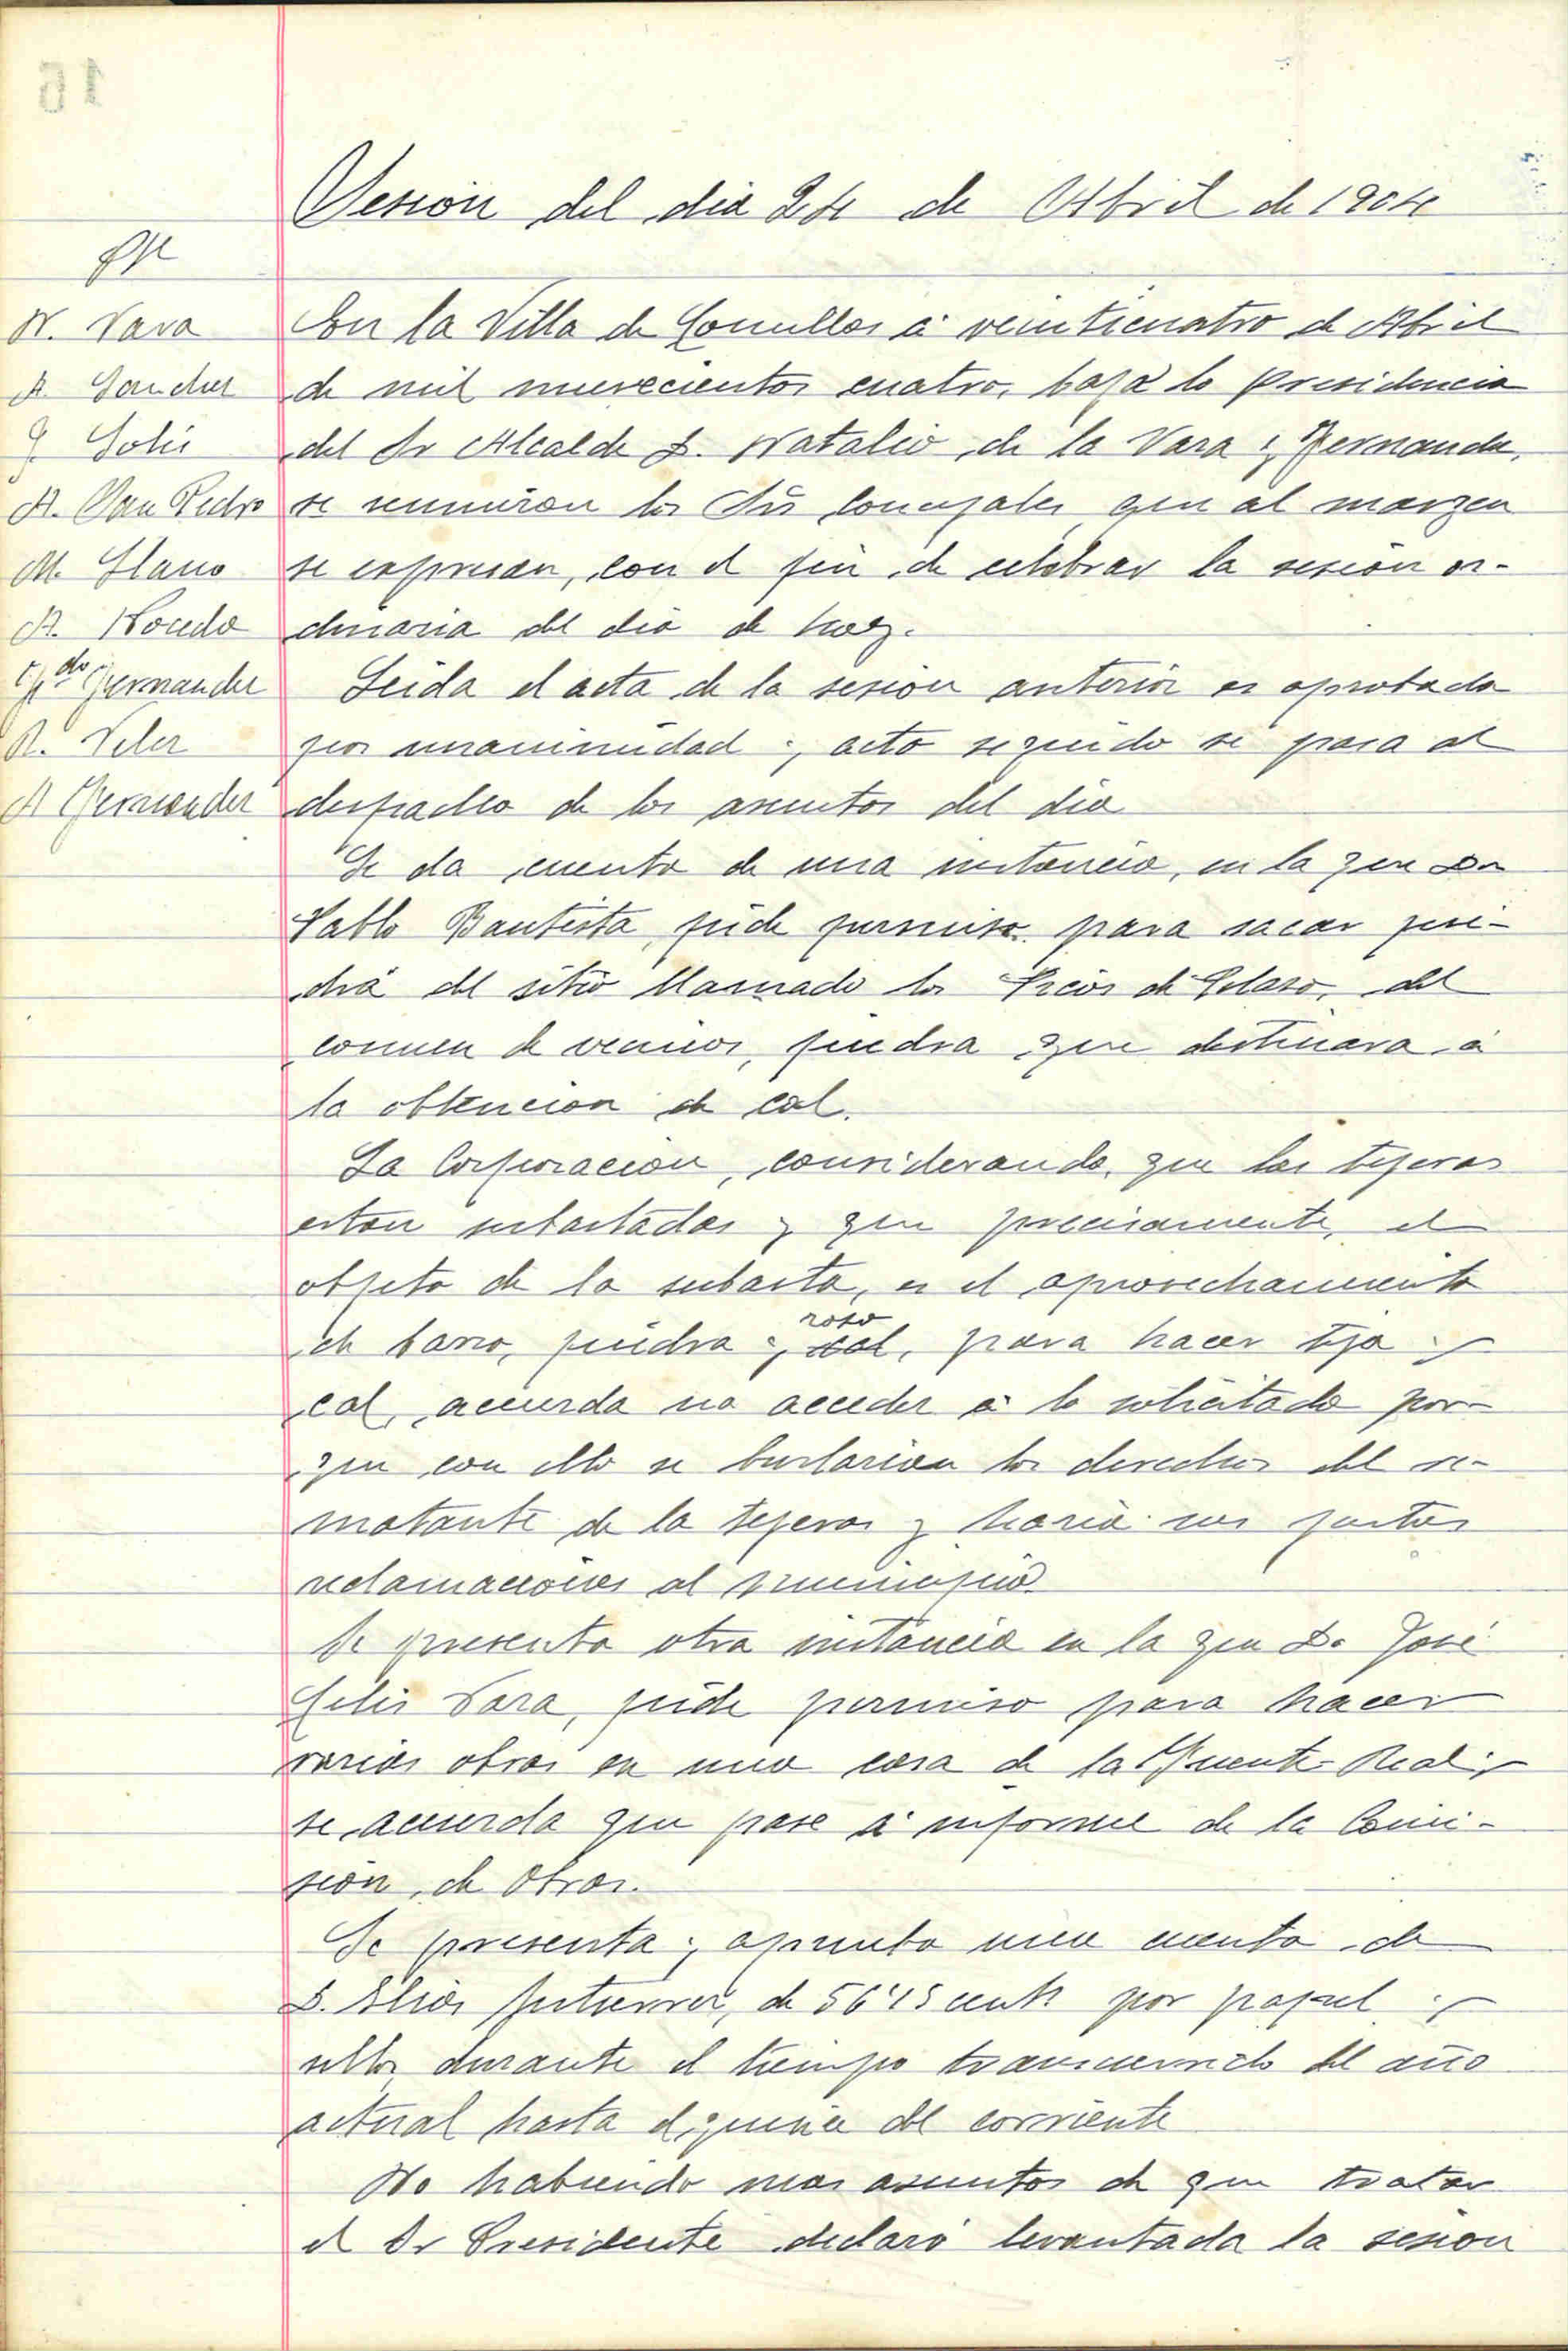 Sesión del dia 24 de Abril de 1904
N. Vara
A. Sanchez
J. Solis
A. San Pedro
M. Llano
A. Noceda
F.do Fernandez
R. Velez
A Fernandez
En la Villa de Comillas á veinticuatro de Abril
de mil nuevecientos cuatro, bajo la Presidencia
del Sr Alcalde D. Natalio de la Vara y Fernandez,
se reunieron los Sres Concejales que al margen
se expresan, con el fin de celebrar la sesión or-
dinaria del dia de hoy.
Leida el acta de la sesion anterior es aprobada
por unanimidad y acto seguido se pasa al
despacho de los asuntos del dia
Se da cuenta de una instancia, en la que Dn
Pablo Bautista, pide permiso para sacar pie-
dra del sitio llamado los Picos de, del
comun de vecinos, piedra que destinara á
la obtencion de cal.
La Corporacion, considerando, que las tejeras
estan subastadas y que precisamente, el
objeto de la subasta, es el aprovechamiento
de barro, piedra y rozo cal, para hacer teja y
cal, acuerda no acceder á lo solicitado por-
que con ello se burlarian los derechos del re-
matante de la tejeras y haria sus justas
reclamaciones al municipio
Se presenta otra instancia en la que D. José
Felis Vara, pide permiso para hacer
varias obras en una casa de la Fuente Real y
se acuerda que pase á informe de la Comi-
sión de Obras.
Se presenta y aprueba una cuenta de
D. Elias Gutierrez, de 56'15 cents por papel y
sellos durante el tiempo transcurrido del año
actual hasta el quince del corriente
No habiendo mas asuntos de que tratar
el Sr Presidente declaró levantada la sesion